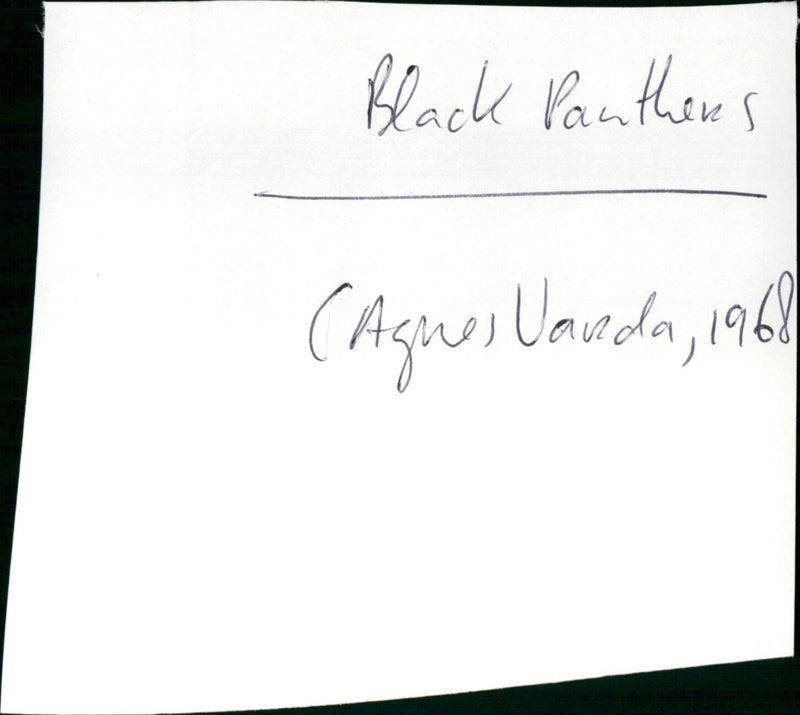 Black Panthers
(Agnes Varda, 1968